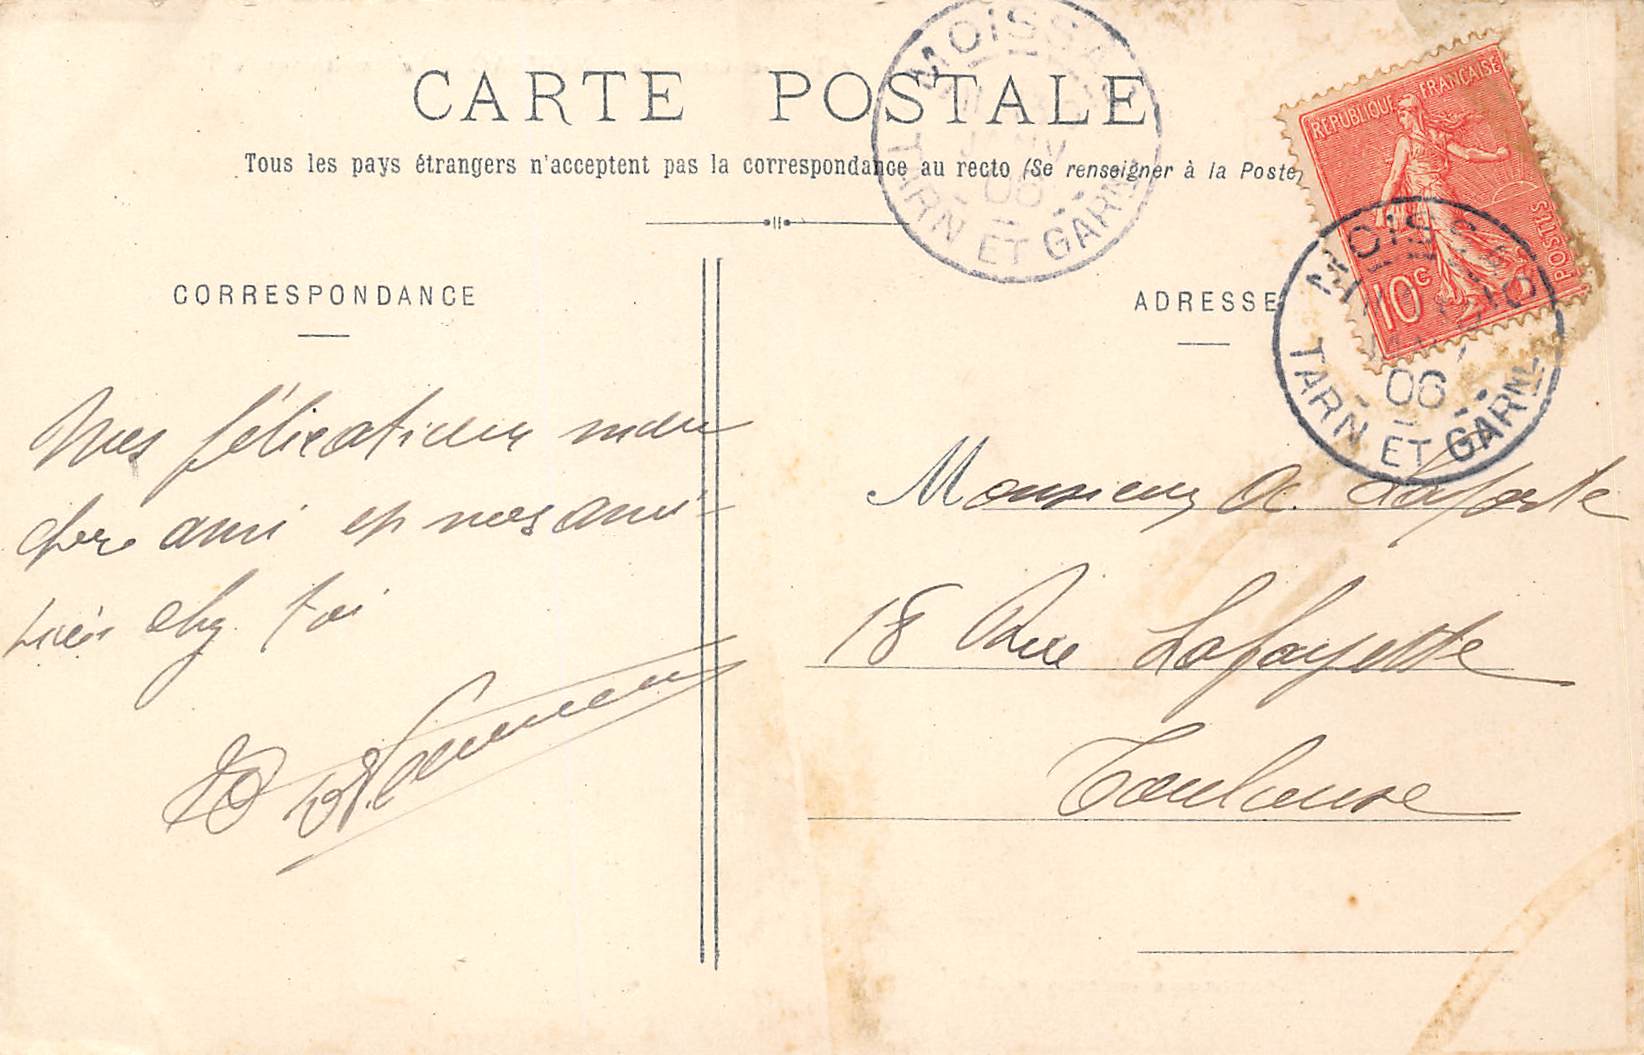 CARTE POSTALE
Tous les pays étrangers n'acceptent pas la correspondance au recto (Se renseigner à la Poste)
MOISSAC
JANV
06
TARN ET GARNE
REPUBLIQUE FRANÇAISE
POSTES
10c
MOISSAC
06
TARN ET GARNE
CORRESPONDANCE
Mes félicitations mon
cher ami et mes ami-
tiés chez toi
ADRESSE
Monsieur A. Laforte
18 Rue Lafayette
Toulouse